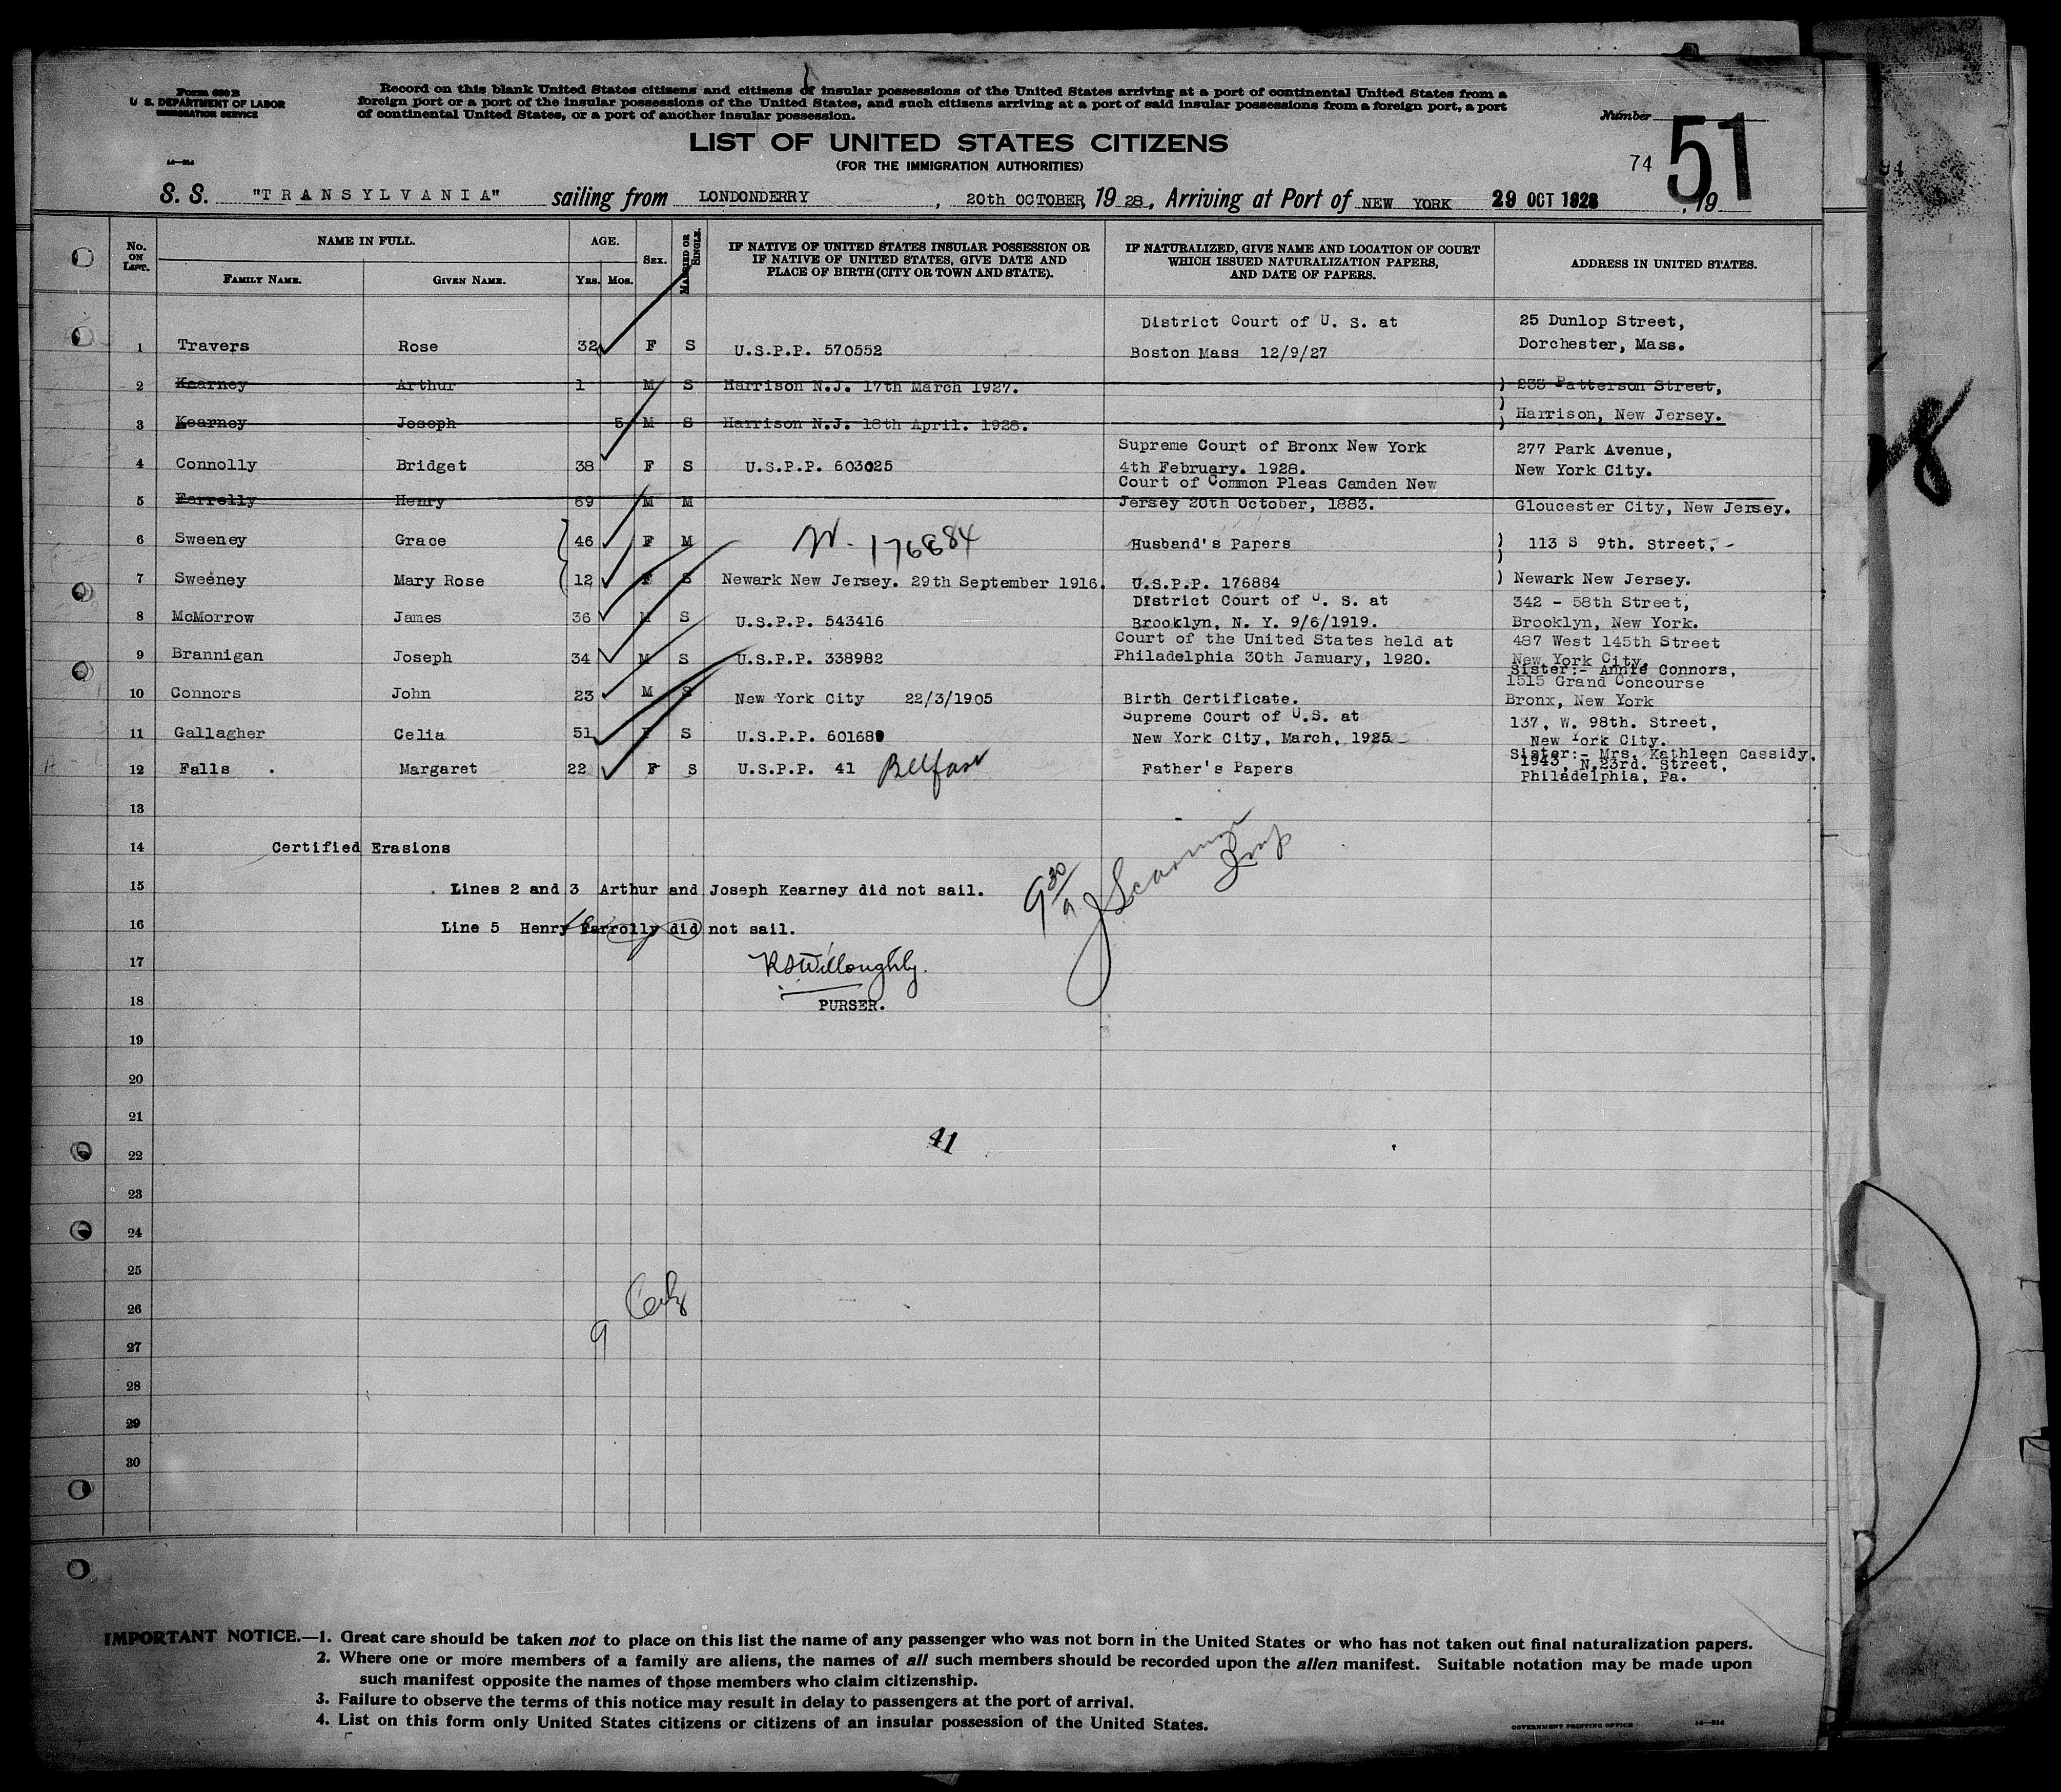 Form 630 B
U. S. DEPARTMENT OF LABOR
IMMIGRATION SERVICE
Record on this blank United States citizens and citizens of insular possessions of the United States arriving at a port of continental United States from a
foreign port or a port of the insular possessions of the United States, and such citizens arriving at a port of said insular possessions from a foreign port, a port
of continental United States, or a port of another insular possession.
Number
LIST OF UNITED STATES CITIZENS
(FOR THE IMMIGRATION AUTHORITIES)
74 51
S. S. "TRANSYLVANIA" sailing from LONDONDERRY, 20th OCTOBER, 19 28, Arriving at Port of NEW YORK 29 OCT 1928, 19
No. ON LIST.
NAME IN FULL.
FAMILY NAME. GIVEN NAME.
AGE.
YRS. MOS.
SEX.
MARRIED OR SINGLE.
IF NATIVE OF UNITED STATES INSULAR POSSESSION OR
IF NATIVE OF UNITED STATES, GIVE DATE AND
PLACE OF BIRTH (CITY OR TOWN AND STATE).
IF NATURALIZED, GIVE NAME AND LOCATION OF COURT
WHICH ISSUED NATURALIZATION PAPERS,
AND DATE OF PAPERS.
ADDRESS IN UNITED STATES.
District Court of U. S. at 25 Dunlop Street,
1 Travers Rose 32 F S U.S.P.P. 570552 Boston Mass 12/9/27 Dorchester, Mass.
2 Kearney Arthur 1 M S Harrison N.J. 17th March 1927. ) 233 Patterson Street,
3 Kearney Joseph 5 M S Harrison N.J. 18th April. 1928. ) Harrison, New Jersey.
Supreme Court of Bronx New York 277 Park Avenue,
4 Connolly Bridget 38 F S U.S.P.P. 603025 4th February. 1928. New York City.
Court of Common Pleas Camden New
5 Farrelly Henry 69 M M Jersey 20th October, 1883. Gloucester City, New Jersey.
6 Sweeney Grace 46 F M 176884 Husband's Papers ) 113 S 9th. Street,
7 Sweeney Mary Rose 12 F S Newark New Jersey. 29th September 1916. U.S.P.P. 176884 ) Newark New Jersey.
District Court of U. S. at 342 - 58th Street,
8 McMorrow James 36 M S U.S.P.P. 543416 Brooklyn, N. Y. 9/6/1919. Brooklyn, New York.
Court of the United States held at 487 West 145th Street
9 Brannigan Joseph 34 M S U.S.P.P. 338982 Philadelphia 30th January, 1920. New York City.
Sister:- Annie Connors,
1515 Grand Concourse
10 Connors John 23 M S New York City 22/3/1905 Birth Certificate. Bronx, New York
Supreme Court of U.S. at 137, W. 98th. Street,
11 Gallagher Celia 51 F S U.S.P.P. 601680 New York City, March, 1925 New York City.
Sister:- Mrs. Kathleen Cassidy,
1943, N.23rd. Street,
12 Falls . Margaret 22 F S U.S.P.P. 41 Belfast Father's Papers Philadelphia, Pa.
13
14 Certified Erasions
15 Lines 2 and 3 Arthur and Joseph Kearney did not sail.
16 Line 5 Henry Farrolly did not sail.
17 Willoughby.
18 PURSER.
19
20
21
41
22
23
24
25
26
9
27
28
29
30
IMPORTANT NOTICE.—1. Great care should be taken not to place on this list the name of any passenger who was not born in the United States or who has not taken out final naturalization papers.
2. Where one or more members of a family are aliens, the names of all such members should be recorded upon the alien manifest. Suitable notation may be made upon
such manifest opposite the names of those members who claim citizenship.
3. Failure to observe the terms of this notice may result in delay to passengers at the port of arrival.
4. List on this form only United States citizens or citizens of an insular possession of the United States.
GOVERNMENT PRINTING OFFICE